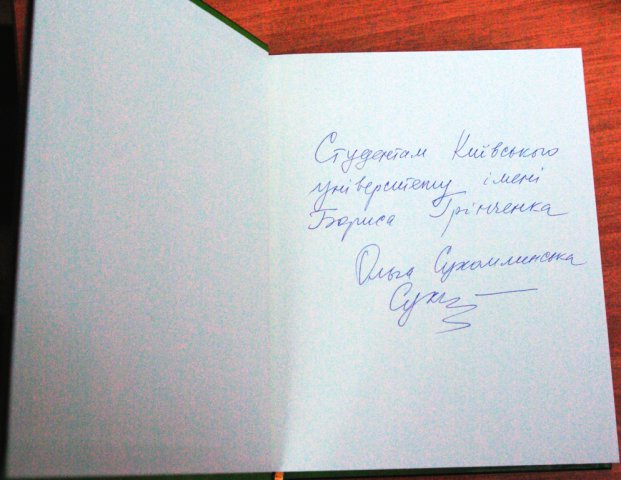 Студентам Київського
університету імені
Бориса Грінченка
Ольга Сухомлинська
Сух